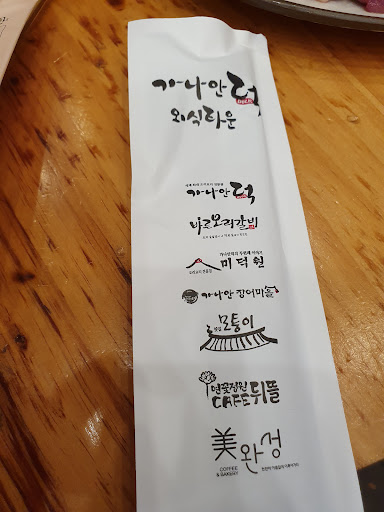 가나안덕
외식타운
가나안덕
바로오리갈비
미덕원
가나안 장어마을
모퉁이
연꽃정원
CAFE뒤뜰
美완성
COFFEE
& BAKERY